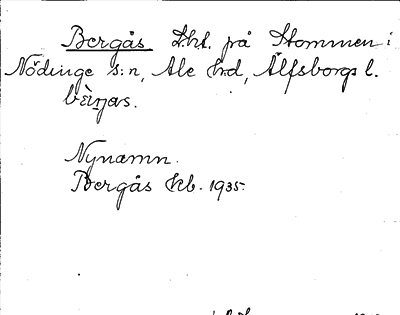 Bergås Lht. på Stommen i
Nödinge s:n, Ale hd, Älfsborgs l.
bèŋas.
Nynamn.
Bergås kb. 1935.